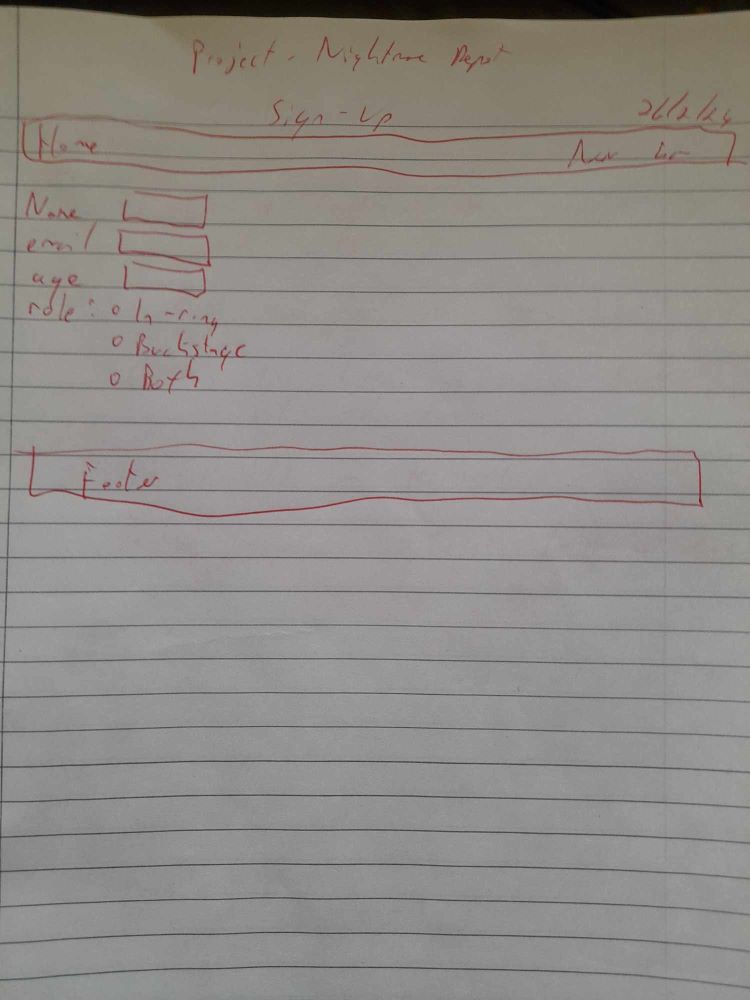 Project - Nightmare Depot
Sign-Up
26/2/24
Home
Name
email
age
role: o In-ring
o Backstage
o Both
Footer